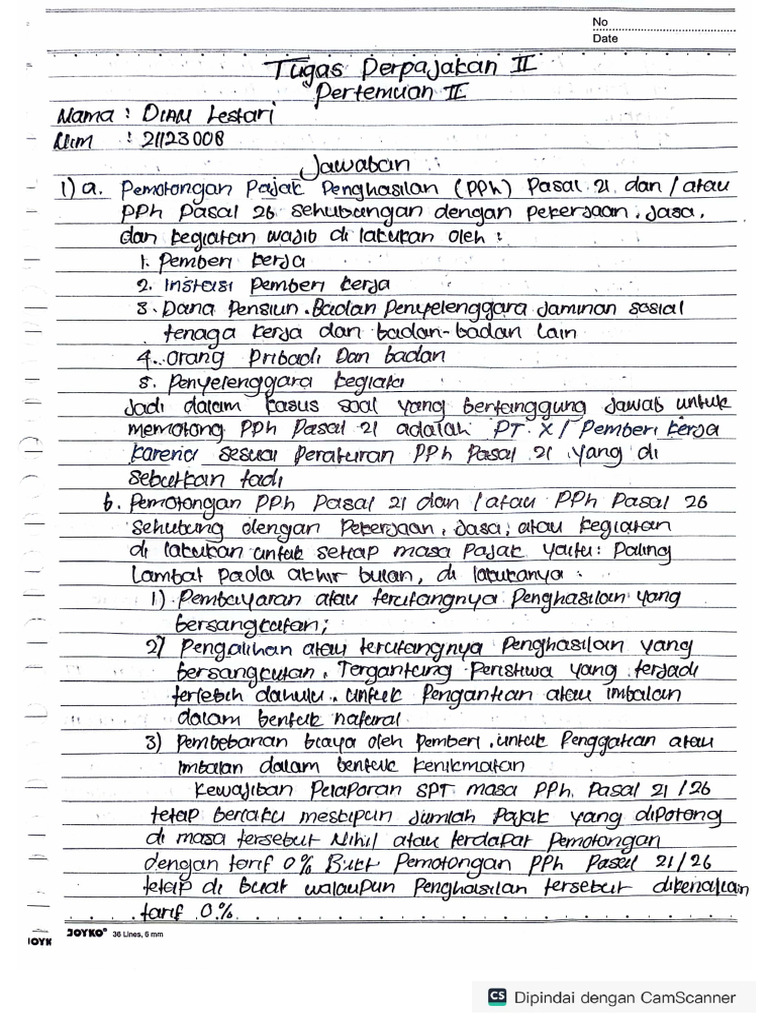 No
Date
Tugas Perpajakan II
Pertemuan II
Nama : DIAN Lestari
Nim : 21123008
Jawaban :
1) a. Pemotongan Pajak Penghasilan (PPh) Pasal 21 dan / atau
PPh Pasal 26 sehubungan dengan pekerjaan, jasa,
dan kegiatan wajib di lakukan oleh :
1. Pemberi kerja
2. Instasi Pemberi kerja
3. Dana Pensiun. Badan Penyelenggara Jaminan sosial
tenaga kerja dan badan-badan lain
4. Orang Pribadi Dan badan
5. Penyelenggara kegiata
Jadi dalam kasus soal yang bertanggung jawab untuk
memotong PPh Pasal 21 adalah PT. X / Pemberi kerja
karena sesuai Peraturan PPh Pasal 21 yang di
sebutkan tadi
b. Pemotongan PPh Pasal 21 dan / atau PPh Pasal 26
sehubung dengan Pekerjaan, Jasa, atau kegiatan
di lakukan untuk setiap masa Pajak yaitu: Paling
Lambat pada akhir bulan, di lakukanya :
1) Pembayaran atau terutangnya Penghasilan yang
bersangkutan;
2) Pengalihan atau terutangnya Penghasilan yang
bersangkutan. Tergantung Peristiwa yang terjadi
terlebih dahulu. untuk Pengantian atau imbalan
dalam bentuk natural.
3) Pembebanan biaya oleh Pemberi. untuk Penggatian atau
Imbalan dalam bentuk kenikmatan
Kewajiban Pelaporan SPT masa PPh. Pasal 21 /26
tetap berlaku meskipun Jumlah Pajak yang dipotong
di masa tersebut Nihil atau terdapat Pemotongan
dengan tarif 0% Bukt Pemotongan PPh Pasal 21/26
tetap di Buat walaupun Penghasilan tersebut dikenakan
tarif 0%.
JOYK JOYKO 36 Lines, 6 mm
CS Dipindai dengan CamScanner